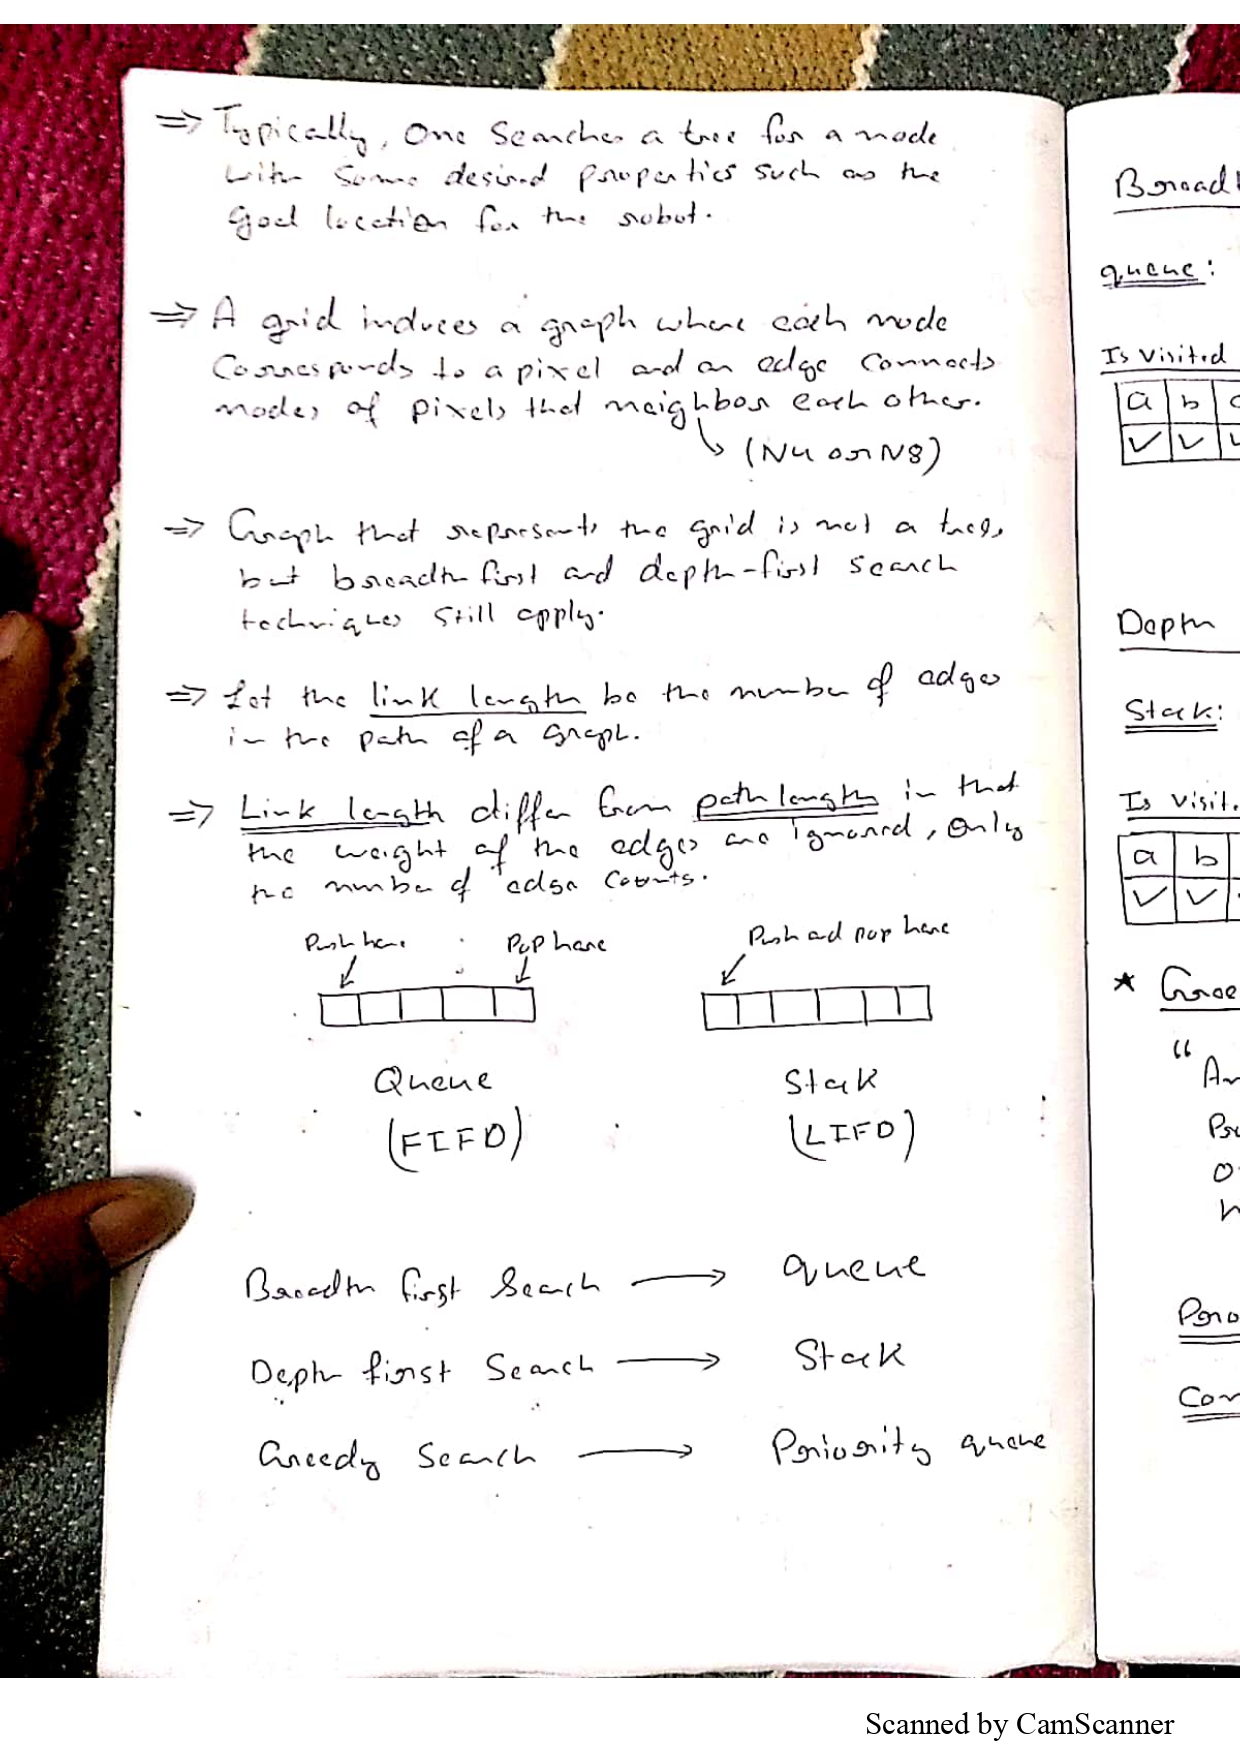 ⇒ Typically, One Searches a tree for a node
with some desired properties such as the
goal location for the robot.
⇒ A grid induces a graph where each node
Corresponds to a pixel and an edge connects
nodes of pixels that neighbor each other.
↳ (N4 or N8)
⇒ Graph that represents the grid is not a tree,
but breadth first and depth-first search
techniques still apply.
⇒ Let the link length be the number of edges
in the path of a Graph.
⇒ Link length differ from path length in that
the weight of the edges are ignored, only
the number of edge counts.
Push here Pop here
Push and pop here
Queue
(FIFO)
Stack
(LIFO)
Breadth first Search → queue
Depth first Search → Stack
Greedy Search → Priority queue
queue:
Is Visited
a b
✓ ✓
Depth
Stack:
a b
✓ ✓
*
"
Scanned by CamScanner